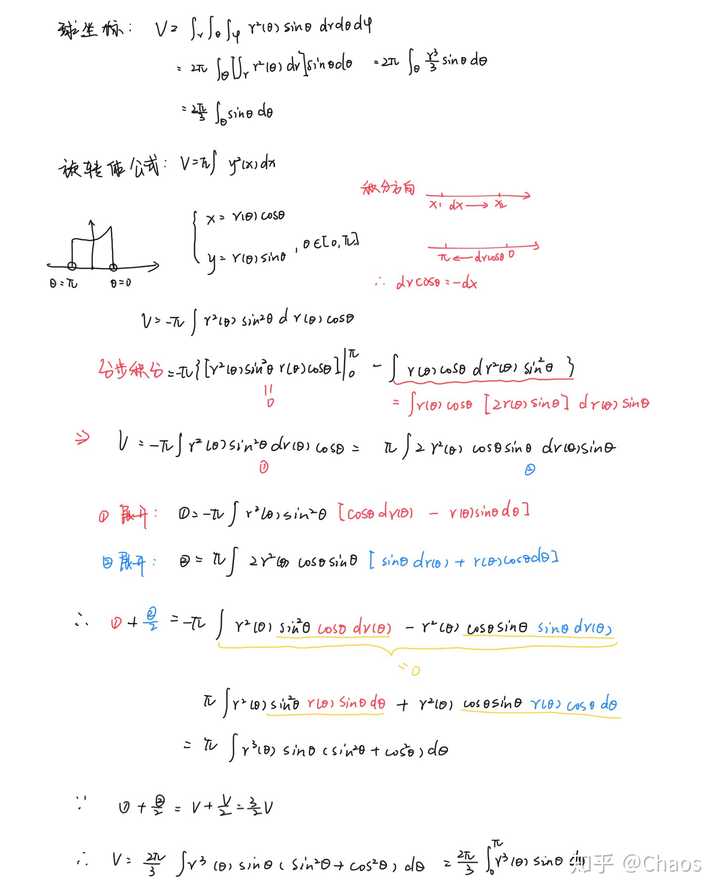 球坐标: V = ∫r∫θ∫φ r²(θ) sinθ dr dθ dφ
= 2π ∫θ [∫r r²(θ) dr] sinθ dθ = 2π ∫θ r³/3 sinθ dθ
= 2π/3 ∫θ sinθ dθ
旋转体公式: V = π∫ y²(x) dx
积分方向
x₁ dx → x₂
{ x = r(θ) cosθ
y = r(θ) sinθ , θ∈[0, π]
π ← drcosθ 0
θ=π θ=0
∴ drcosθ = -dx
V = -π ∫ r²(θ) sin²θ d r(θ) cosθ
分步积分 = -π { [r²(θ) sin²θ r(θ) cosθ] |₀^π - ∫ r(θ) cosθ d r²(θ) sin²θ }
= 0
= ∫ r(θ) cosθ [2r(θ) sinθ] d r(θ) sinθ
⇒ V = -π ∫ r²(θ) sin²θ dr(θ) cosθ = π ∫ 2 r²(θ) cosθ sinθ dr(θ) sinθ
① ②
① 展开: ① = -π ∫ r²(θ) sin²θ [cosθ dr(θ) - r(θ) sinθ dθ]
② 展开: ② = π ∫ 2r²(θ) cosθ sinθ [sinθ dr(θ) + r(θ) cosθ dθ]
∴ ① + ②/2 = -π ∫ r²(θ) sin²θ cosθ dr(θ) - r²(θ) cosθ sinθ sinθ dr(θ)
= 0
π ∫ r²(θ) sin²θ r(θ) sinθ dθ + r²(θ) cosθ sinθ r(θ) cosθ dθ
= π ∫ r³(θ) sinθ (sin²θ + cos²θ) dθ
∵ ① + ②/2 = V + V/2 = 3/2 V
∴ V = 2π/3 ∫ r³(θ) sinθ (sin²θ + cos²θ) dθ = 2π/3 ∫₀^π r³(θ) sinθ dθ
知乎 @Chaos